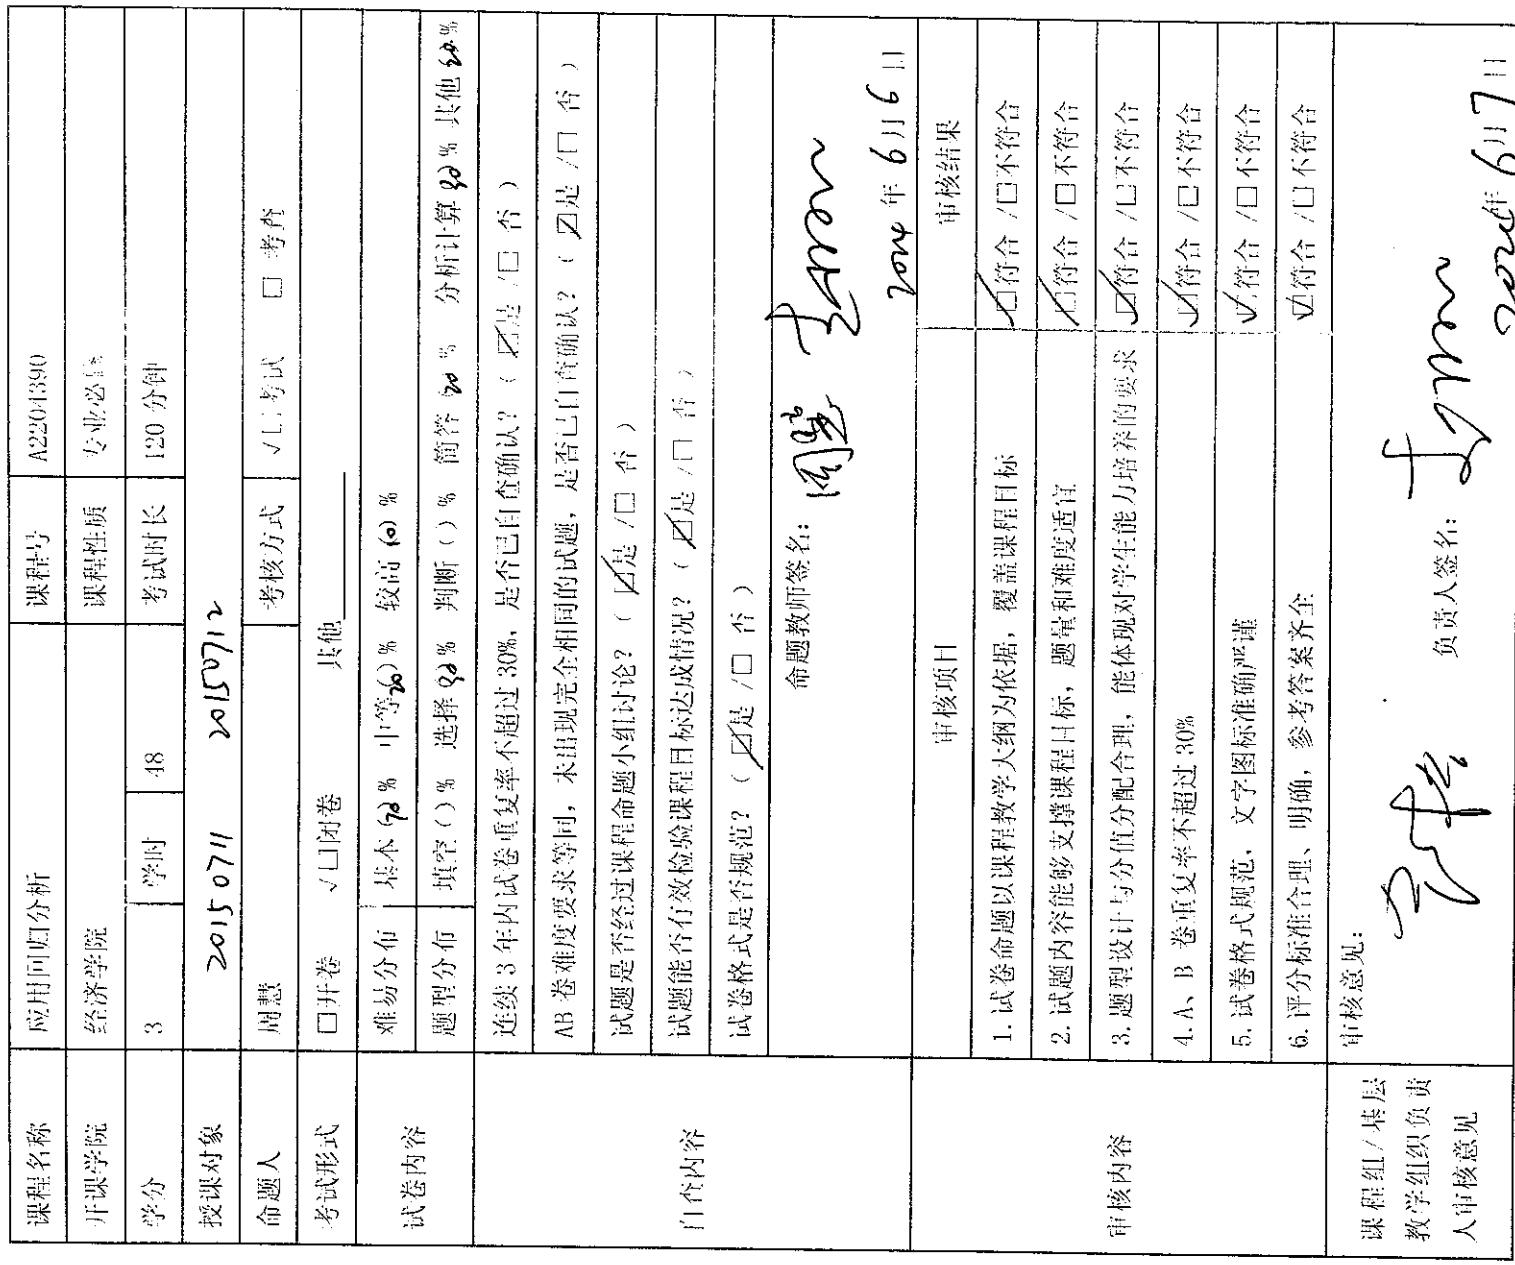 课程名称 应用回归分析 课程号 A2204390
开课学院 经济学院 课程性质 专业必修
学分 3 学时 48 考试时长 120 分钟
授课对象 20150711 20150712
命题人 周慧 考核方式 √□考试 □ 考查
考试形式 □开卷 √□闭卷 其他
试卷内容
难易分布 基本 % 中等 % 较高 (10) %
题型分布 填空 ( ) % 选择 % 判断 ( ) % 简答 % 分析计算 % 其他 %
自查内容
连续 3 年内试卷重复率不超过 30%, 是否已自查确认? ( ☑是 /□ 否 )
AB 卷难度要求等同, 未出现完全相同的试题, 是否已自查确认? ( ☑是 /□ 否 )
试题是否经过课程命题小组讨论? ( ☑是 /□ 否 )
试题能否有效检验课程目标达成情况? ( ☑是 /□ 否 )
试卷格式是否规范? ( ☑是 /□ 否 )
命题教师签名: 周慧
2024 年 6月 6 日
审核内容
审核项目 审核结果
1. 试卷命题以课程教学大纲为依据, 覆盖课程目标 ☑符合 /□不符合
2. 试题内容能够支撑课程目标, 题量和难度适宜 ☑符合 /□不符合
3. 题型设计与分值分配合理, 能体现对学生能力培养的要求 ☑符合 /□不符合
4. A、B 卷重复率不超过 30% ☑符合 /□不符合
5. 试卷格式规范、文字图标准确严谨 ☑符合 /□不符合
6. 评分标准合理、明确, 参考答案齐全 ☑符合 /□不符合
课程组/基层
教学组织负责
人审核意见
审核意见:
负责人签名:
年 6月 7 日